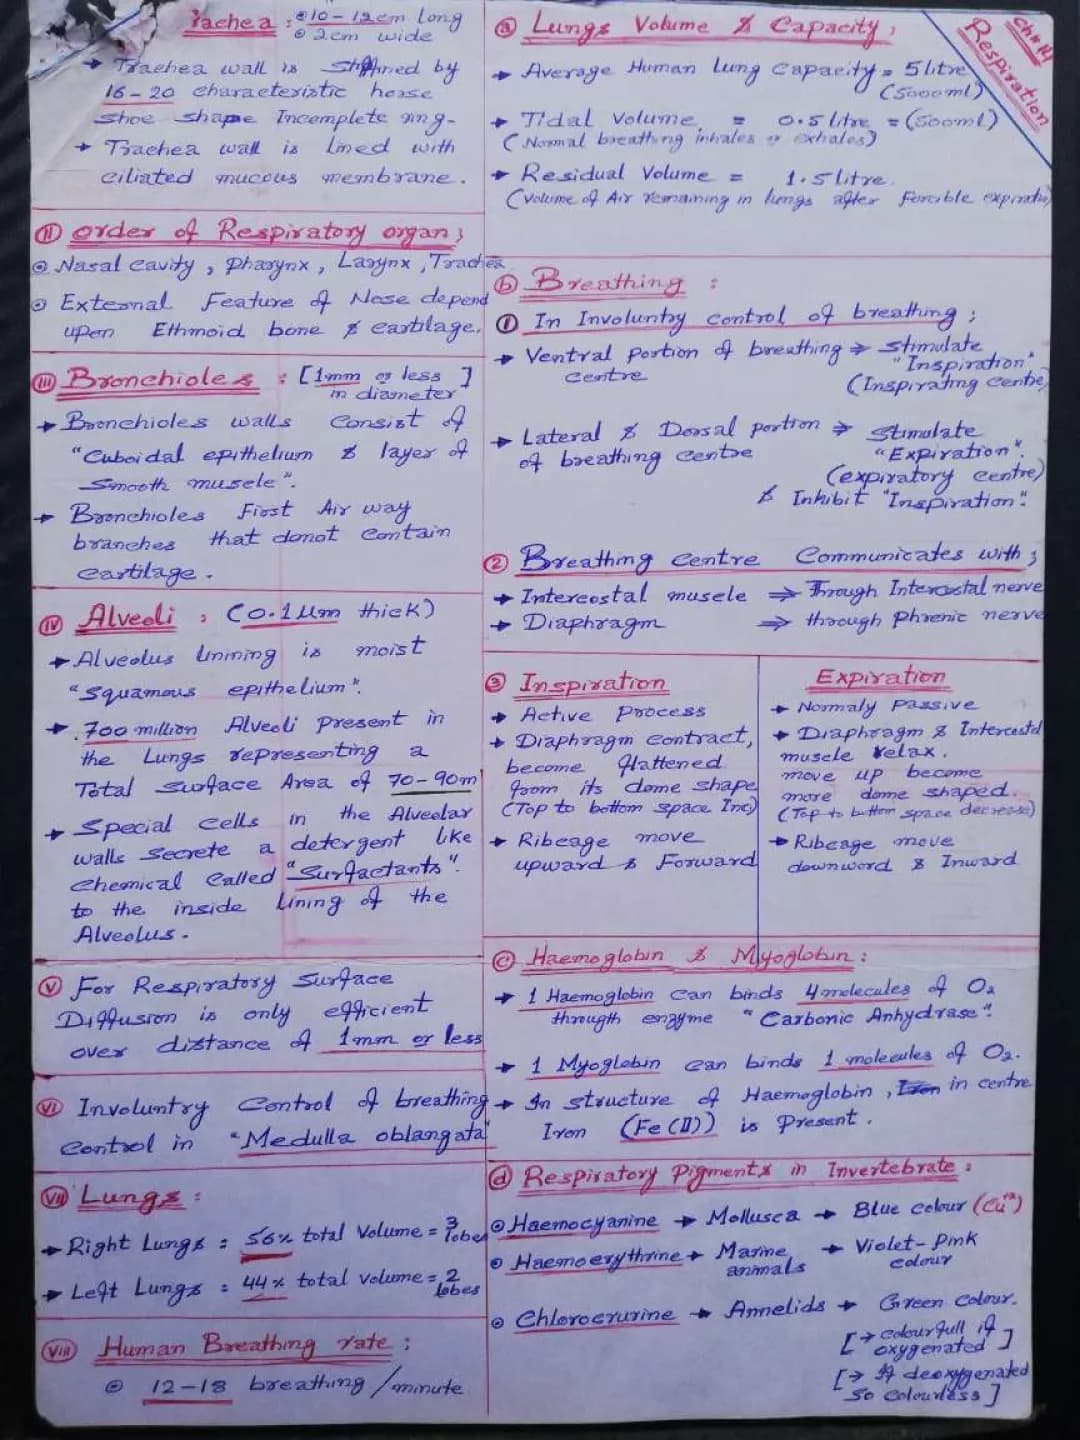 Trachea : ⊙ 10-12cm long
⊙ 2cm wide
→ Trachea wall is stiffined by
16-20 characteristic horse
shoe shape Incomplete ring-
→ Trachea wall is lined with
ciliated mucous membrane.
(II) order of Respiratory organ;
⊙ Nasal cavity, Pharynx, Larynx, Trachea
⊙ External Feature of Nose depend
upon Ethmoid bone & cartilage.
(III) Bronchioles : [1mm or less ]
in diameter
→ Bronchioles walls consist of
"Cuboidal epithelium & layer of
Smooth muscle".
→ Bronchioles First Air way
branches that donot contain
cartilage.
(IV) Alveoli : (0.1µm thick)
→ Alveolus linining is moist
"Squamous epithelium".
→ 700 million Alveoli present in
the Lungs representing a
Total surface Area of 70-90m
→ Special cells in the Alveolar
walls secrete a detergent like
chemical called "Surfactants".
to the inside lining of the
Alveolus.
(V) For Respiratory Surface
Diffusion is only efficient
over distance of 1mm or less
(VI) Involuntry control of breathing
control in "Medulla oblangata"
(VII) Lungs :
→ Right Lungs : 56% total volume = 3 lobes
→ Left Lungs : 44% total volume = 2 lobes
(VIII) Human Breathing rate :
⊙ 12-18 breathing/minute
Ch# 14
Respiration
(a) Lungs Volume & Capacity;
→ Average Human lung capacity = 5 litre
(5000ml)
→ Tidal volume = 0.5 litre = (500ml)
(Normal breathing inhales or exhales)
→ Residual Volume = 1.5 litre
(Volume of Air remaining in lungs after forcible expiratio)
(b) Breathing :
(1) In Involuntry control of breathing;
→ Ventral portion of breathing ⇒ stimulate
centre "Inspiration"
(Inspirating centre)
→ Lateral & Dorsal portion ⇒ Stimulate
of breathing centre "Expiration".
(expiratory centre)
& Inhibit "Inspiration".
(2) Breathing centre Communicates with;
→ Intercostal muscle ⇒ Through Intercostal nerve
→ Diaphragm ⇒ through phrenic nerve
(3) Inspiration
→ Active Process
→ Diaphragm contract,
become flattened
from its dome shape
(Top to bottom space Inc)
→ Ribcage move
upward & Forward
Expiration
→ Normaly Passive
→ Diaphragm & Intercostal
muscle relax.
move up become
more dome shaped.
(Top to bottom space decrease)
→ Ribcage move
downword & Inward
(c) Haemoglobin & Myoglobin :
→ 1 Haemoglobin can binds 4 molecules of O2
throught enzyme "Carbonic Anhydrase".
→ 1 Myoglobin can binds 1 molecules of O2.
→ In structure of Haemoglobin, Iron in centre
Iron (Fe(II)) is Present.
(d) Respiratory Pigments in Invertebrate :
⊙ Haemocyanine → Mollusca → Blue colour (Cu+2)
⊙ Haemoerythrine → Marine → Violet-Pink
animals colour
⊙ Chlorocrurine → Annelids → Green colour.
[→ colourfull if
oxygenated ]
[→ If deoxygenated
so colourless]